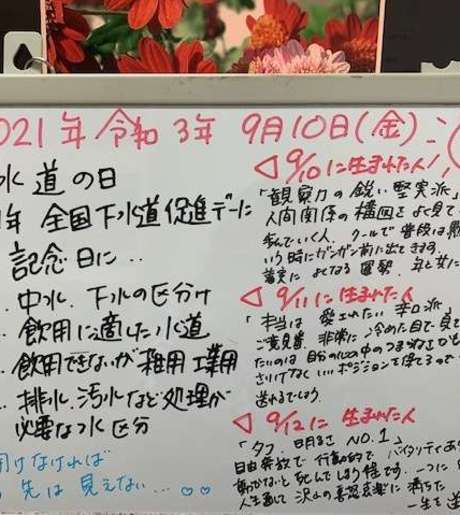 021年 令和3年 9月10日(金)
水道の日
年 全国下水道促進デーに
記念日に‥
中水.下水の区分け
飲用に適した水道
飲用できないが雑用工業用
排水.汚水など処理が
必要な水区分
開けなければ
先は見えない…♡♡
◁9/10に生まれた人!
「観察力の鋭い堅実派」
人間関係の構図をよく見て
歩んでいく人.クールで普段は
いう時にガンガン前に出てきます。
着実によくなる運勢.年と女に
◁9/11に生まれた人
「本当は愛されたい辛口派」
ご意見番.非常に冷めた目で見て
たいのは自分の心の中のつまずきかも
さりげなくいいポジションを得てるので
送れるでしょう.
◁9/12に生まれた人
「タフ.明るさNO.1」
自由奔放で行動的でバイタリティあ
動かないと死んでしまう程です.一つに
人生通して沢山の喜怒哀楽に満ちた
一生を送